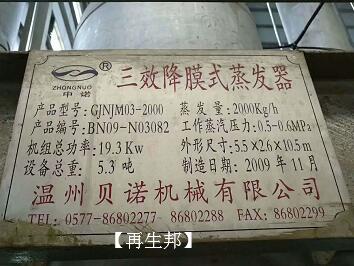 ZHONGNUO
中诺
®
三效降膜式蒸发器
产品型号:GJNJM03-2000 蒸发量:2000Kg/h
产品编号:BN09-N03082 工作蒸汽压力:0.5-0.6MPa
机组总功率:19.3Kw 外形尺寸:5.5×2.6×10.5m
设备总重:5.3吨 制造日期:2009年11月
温州贝诺机械有限公司
TEL:0577-86802277 86802288 FAX:86802299
【再生邦】